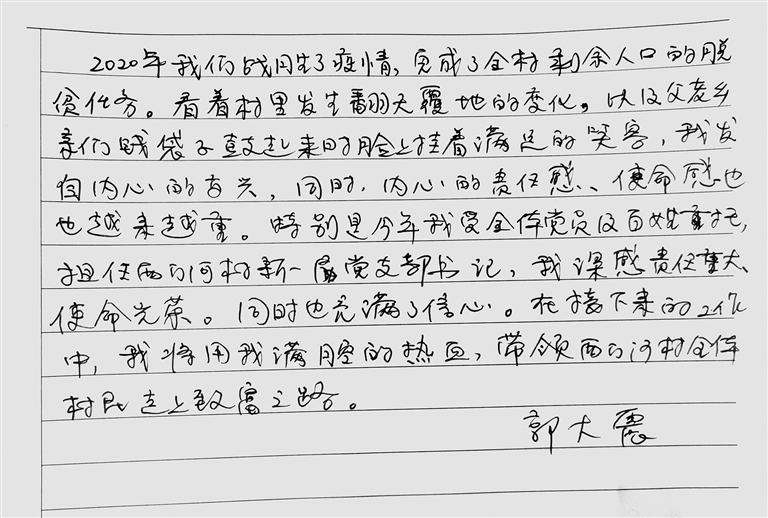 2020年我们战胜了疫情,完成了全村剩余人口的脱
贫任务。看着村里发生翻天覆地的变化。以及父老乡
亲们钱袋子鼓起来时脸上挂着满足的笑容,我发
自内心的高兴,同时,内心的责任感、使命感也
也越来越重。特别是今年我受全体党员及百姓重托,
担任西河村新一届党支部书记,我深感责任重大、
使命光荣。同时也充满了信心。在接下来的工作
中,我将用我满腔的热血,带领西河村全体
村民走上致富之路。
郭大震